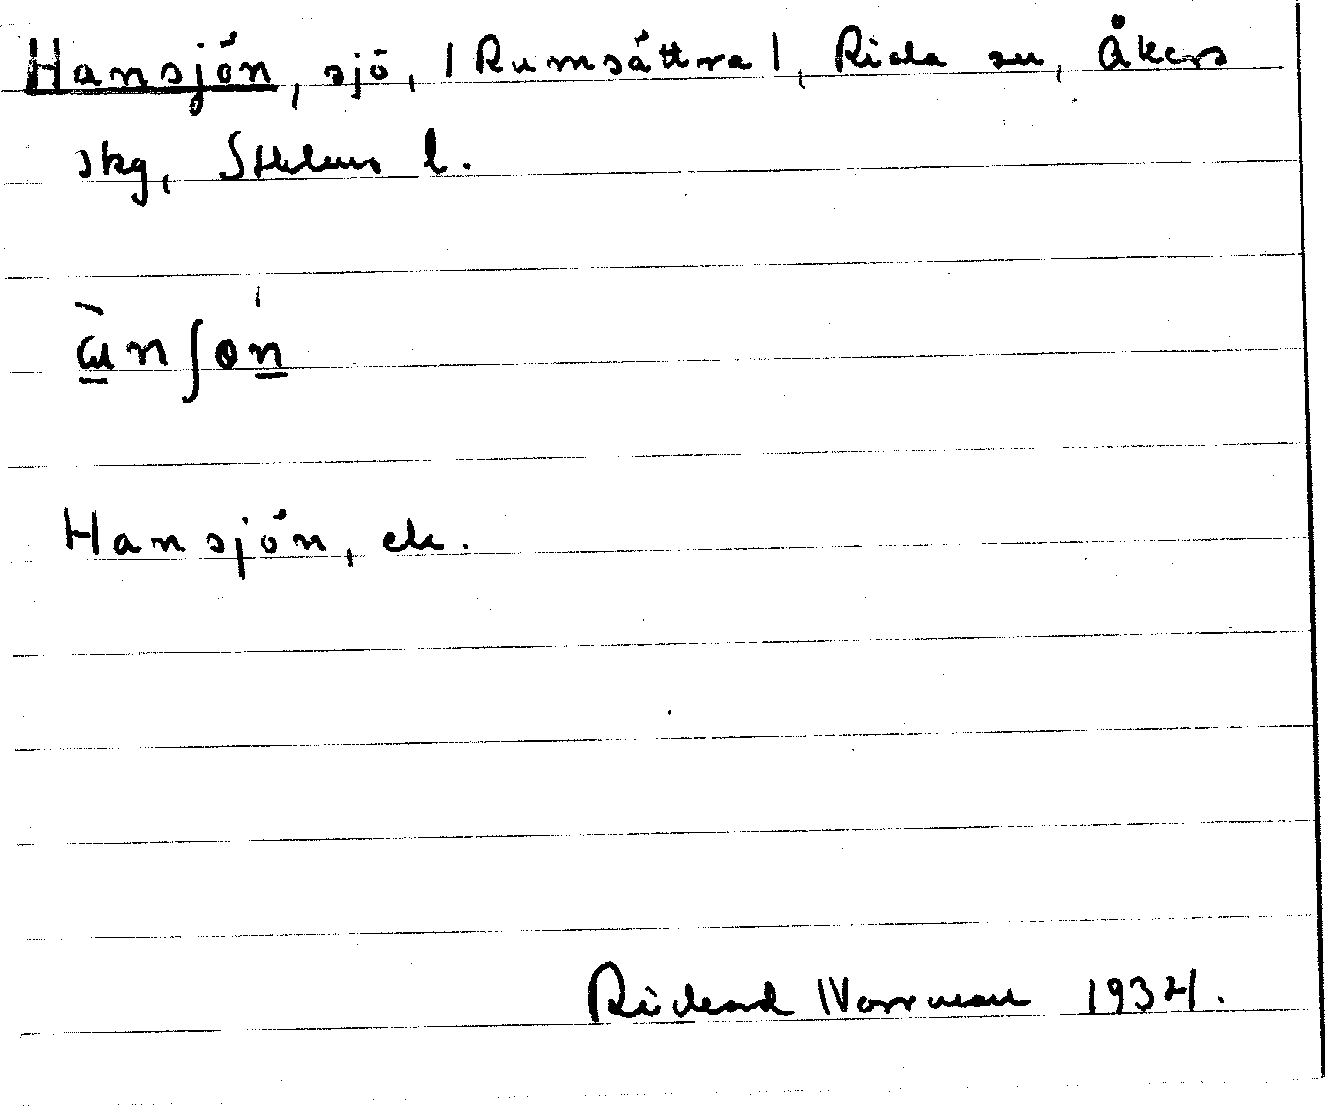 Hansjön, sjö, |Rumsättra|, Riala sn, Åkers
skg, Sthlms l.
ɑ̀nʃøn
Hansjön, ek.
Rickard Norrman 1934.